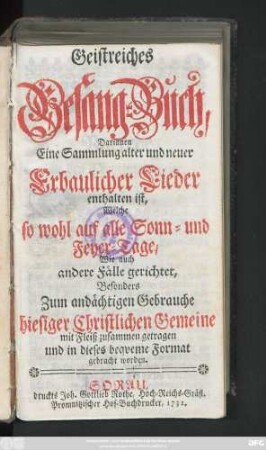 Geistreiches
Gesang-Buch,
Darinnen
Eine Sammlung alter und neuer
Erbaulicher Lieder
enthalten ist,
Welche
so wohl auf alle Sonn- und
Feyer-Tage,
Wie auch
andere Fälle gerichtet,
Besonders
Zum andächtigen Gebrauche
hiesiger Christlichen Gemeine
mit Fleiß zusammen getragen
und in dieses beqveme Format
gebracht worden.
SORAU,
druckts Joh. Gottlieb Rothe, Hoch-Reichs-Gräfl.
Promnitzischer Hof-Buchdrucker, 1732.